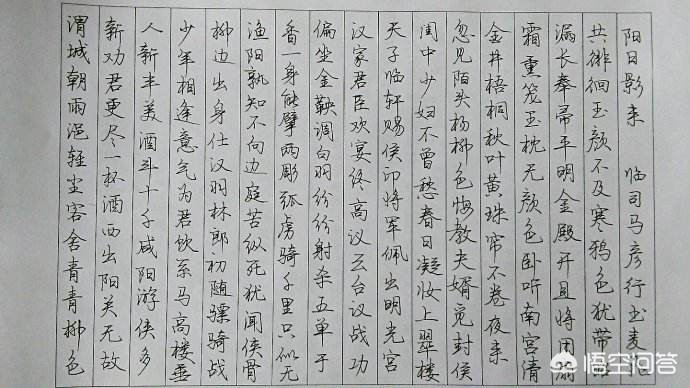 渭城朝雨浥轻尘客舍青青柳色
新劝君更尽一杯酒西出阳关无故
人新丰美酒斗十千咸阳游侠多
少年相逢意气为君饮系马高楼垂
柳边出身仕汉羽林郎初随骠骑战
渔阳孰知不向边庭苦纵死犹闻侠骨
香一身能擘两雕弧虏骑千里只似无
偏坐金鞍调白羽纷纷射杀五单于
汉家君臣欢宴终高议云台议战功
天子临轩赐侯印将军佩出明光宫
闺中少妇不曾愁春日凝妆上翠楼
忽见陌头杨柳色悔教夫婿觅封侯
金井梧桐秋叶黄珠帘不卷夜来
霜熏笼玉枕无颜色卧听南宫清
漏长奉帚平明金殿开且将团扇
共徘徊玉颜不及寒鸦色犹带昭
阳日影来 临司马彦行书
悟空问答